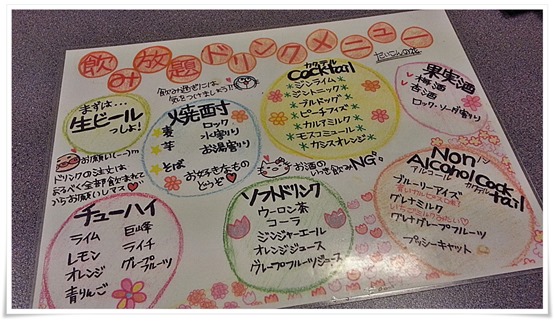 飲み放題ドリンクメニュー
だいこんの花
飲み過ぎには
気をつけましょう!!
まずは…
生ビール
っしょ!
焼酎
麦
芋
そば
ロック
水割り
お湯割り
お好きなもの
どうぞ♡
カクテル
Cocktail
ジンライム
ジントニック
ブルドック
ピーチフィズ
カルアミルク
モスコミュール
カシスオレンジ
果実酒
梅酒
杏酒
ロック・ソーダ割り
お願い(ー人ー)
ドリンクの注文は
なるべく全部飲まれて
からお願いしマス♡
お酒の
いっき飲みNG
チューハイ
ライム
レモン
オレンジ
青りんご
巨峰
ライチ
グレープ
フルーツ
ソフトドリンク
ウーロン茶
コーラ
ジンジャーエール
オレンジジュース
グレープフルーツジュース
Nonノン
アルコール
Alcohol Cocktail
カクテル
ブルーリーアイズ
グレナミルク
いちごミルクみたい♡
グレナグレープフルーツ
プッシーキャット